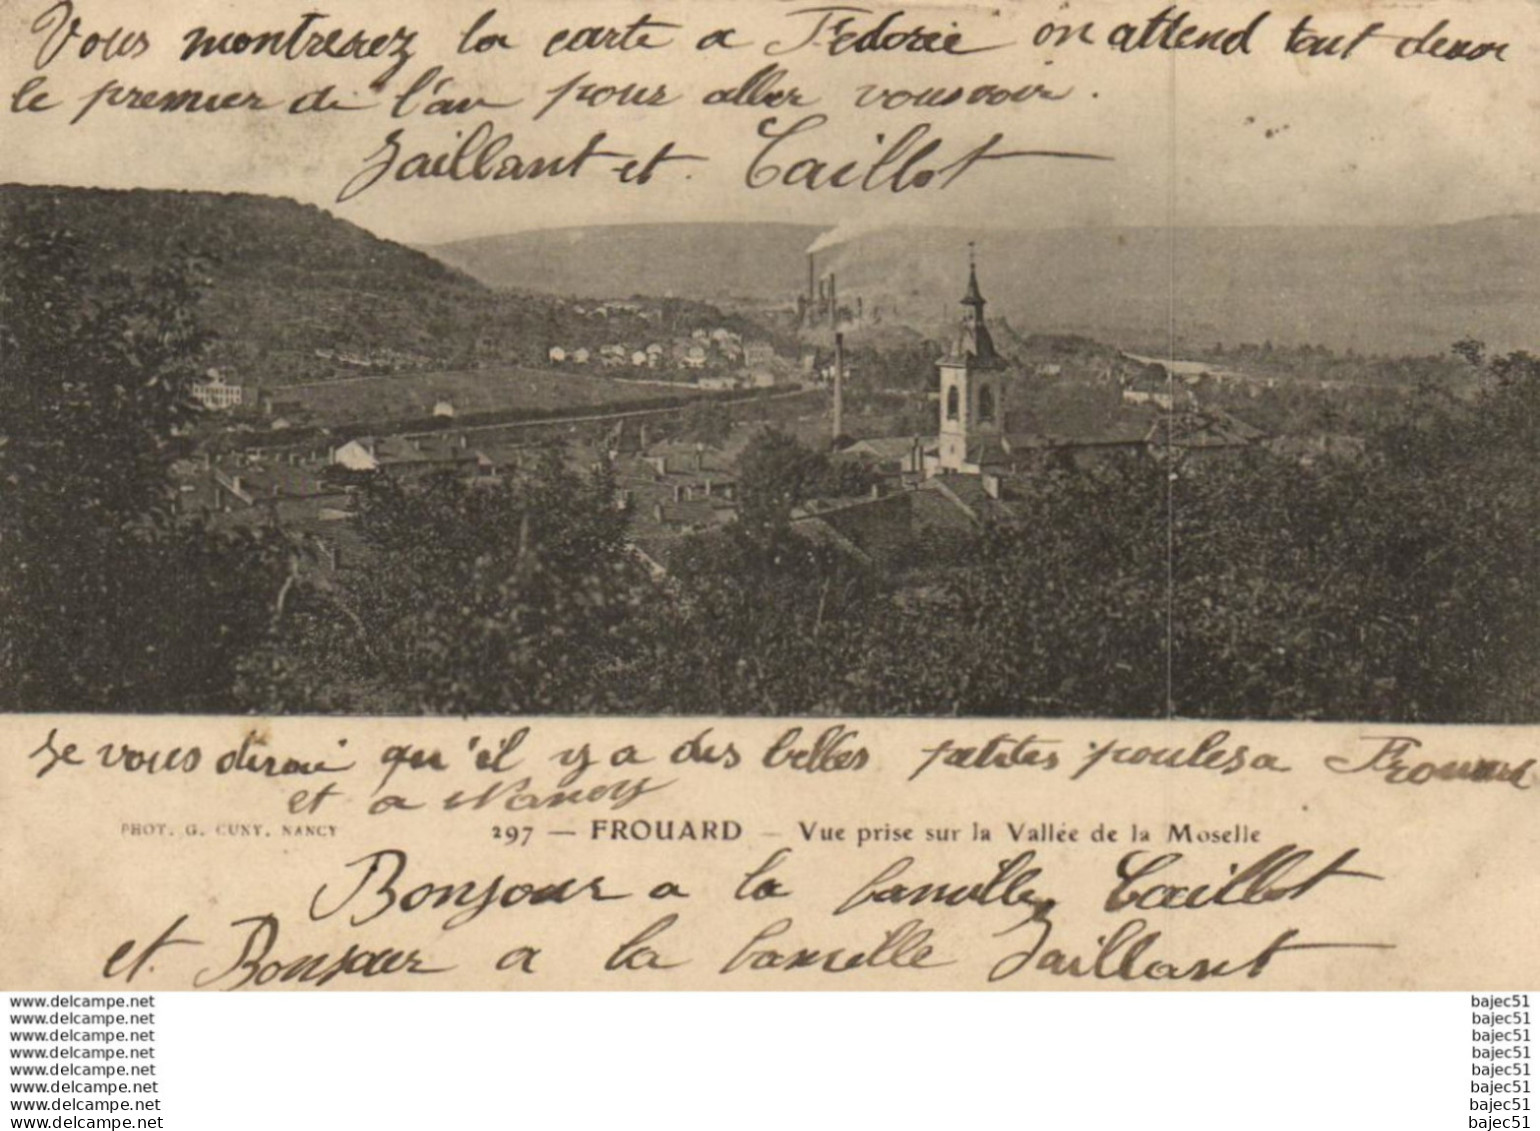 Vous montrerez la carte a Fédorie on attend tout deux
le premier de l'an pour aller vous voir.
Jaillant et Caillot
Je vous dirai qu'il y a des belles petites poules a Frouard
et a Nancy
PHOT. G. CUNY, NANCY
297 — FROUARD — Vue prise sur la Vallée de la Moselle
Bonjour a la famille Caillot
et Bonjour a la famille Jaillant
www.delcampe.net bajec51
www.delcampe.net bajec51
www.delcampe.net bajec51
www.delcampe.net bajec51
www.delcampe.net bajec51
www.delcampe.net bajec51
www.delcampe.net bajec51
www.delcampe.net bajec51